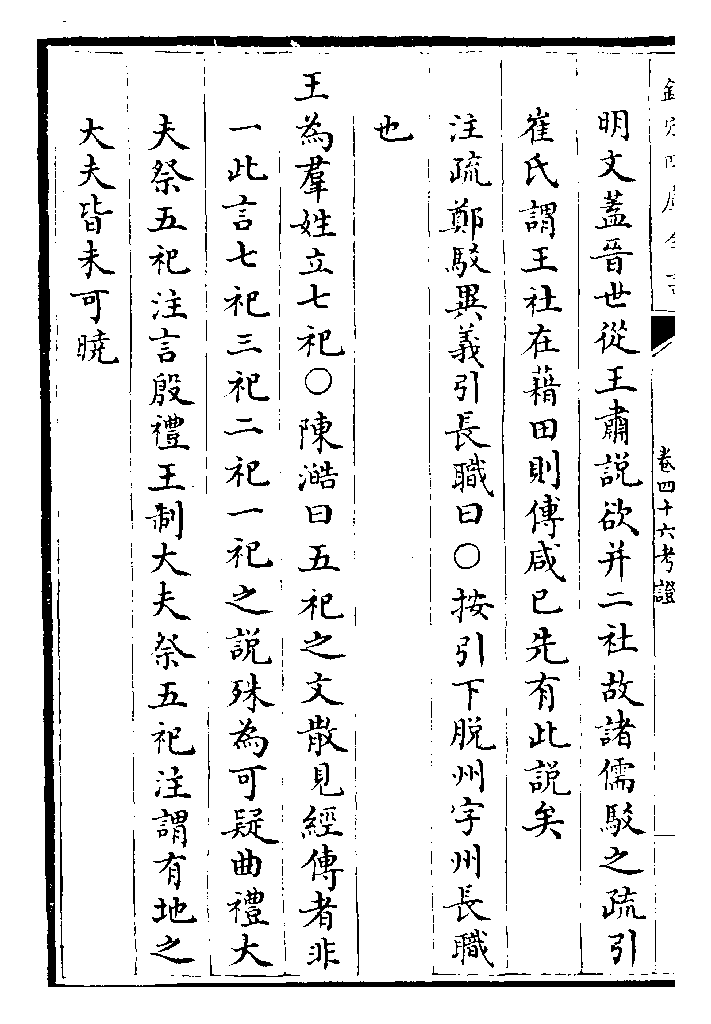 欽定四庫全書
卷四十六考證
明文蓋晉世從王肅說欲并二社故諸儒駁之疏引
崔氏謂王社在藉田則傅咸已先有此說矣
注疏鄭駁異義引長職曰○按引下脱州字州長職
也
王為羣姓立七祀○陳澔曰五祀之文散見經傳者非
一此言七祀三祀二祀一祀之說殊為可疑曲禮大
夫祭五祀注言殷禮王制大夫祭五祀注謂有地之
大夫皆未可曉